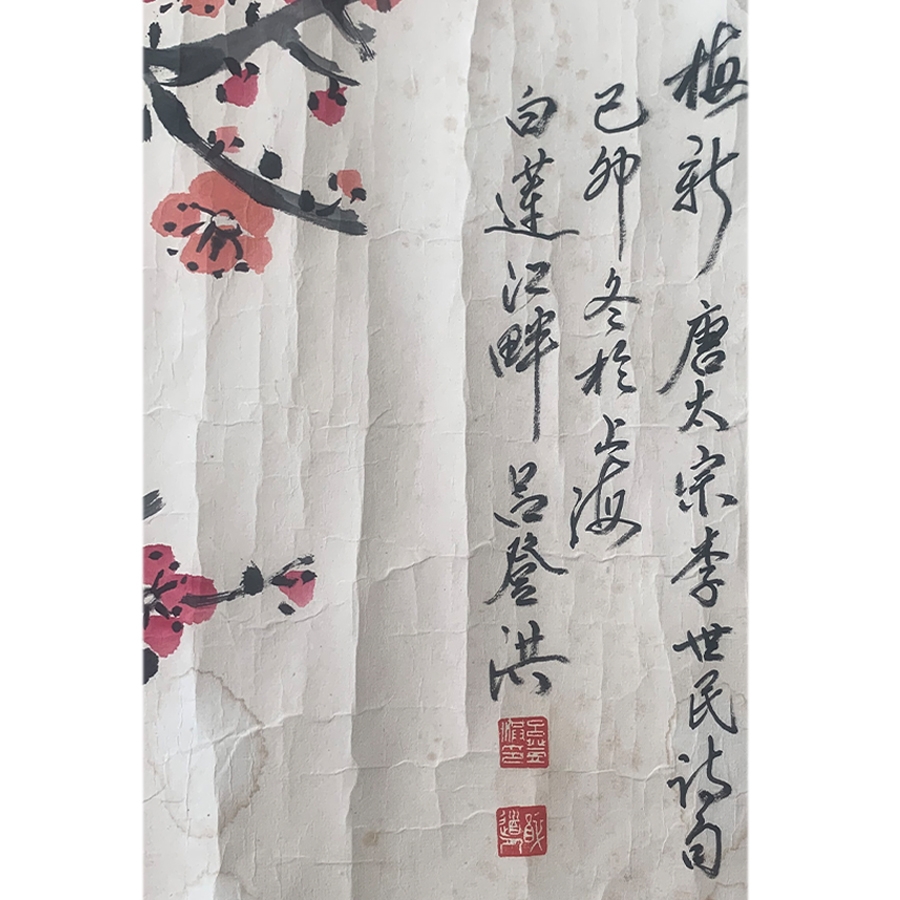 梅新 唐太宗李世民诗句
己卯冬於上海
白莲江畔 吕登洪